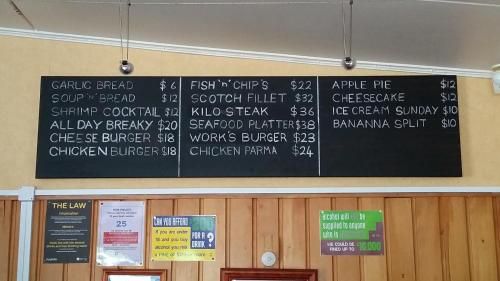 GARLIC BREAD $6
SOUP 'n' BREAD $12
SHRIMP COCKTAIL $12
ALL DAY BREAKY $20
CHEESE BURGER $18
CHICKEN BURGER $18
FISH 'n' CHIP'S $22
SCOTCH FILLET $32
KILO STEAK $36
SEAFOOD PLATTER $38
WORK'S BURGER $23
CHICKEN PARMA $24
APPLE PIE $12
CHEESECAKE $12
ICE CREAM SUNDAY $10
BANANNA SPLIT $10
THE LAW
25
CAN YOU AFFORD
If you are under
18 and you buy
alcohol you risk
FOR A
DRINK ?
alcohol will be
supplied to anyone
who is
WE COULD BE
FINED UP TO
$10,000